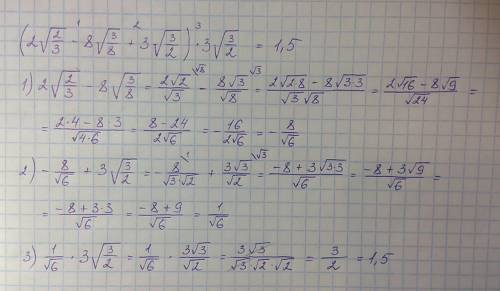 (2√(2/3) - 8√(3/8) + 3√(3/2)) · 3√(3/2) = 1,5
1 2 3
1) 2√(2/3) - 8√(3/8) = 2√2/√3 \√8 - 8√3/√8 \√3 = (2√2·8 - 8√3·3)/(√3 √8) = (2√16 - 8√9)/√24 =
= (2·4 - 8·3)/√4·6 = (8 - 24)/2√6 = -16/2√6 = -8/√6
2) -8/√6 + 3√(3/2) = -8/√3·2 \1 + 3√3/√2 \√3 = (-8 + 3√3·3)/√6 = (-8 + 3√9)/√6 =
= (-8 + 3·3)/√6 = (-8 + 9)/√6 = 1/√6
3) 1/√6 · 3√(3/2) = 1/√6 · 3√3/√2 = 3√3/(√3·√2·√2) = 3/2 = 1,5